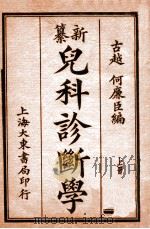 古越 何廉臣編
新纂
兒科診斷學
上海大東書局印行